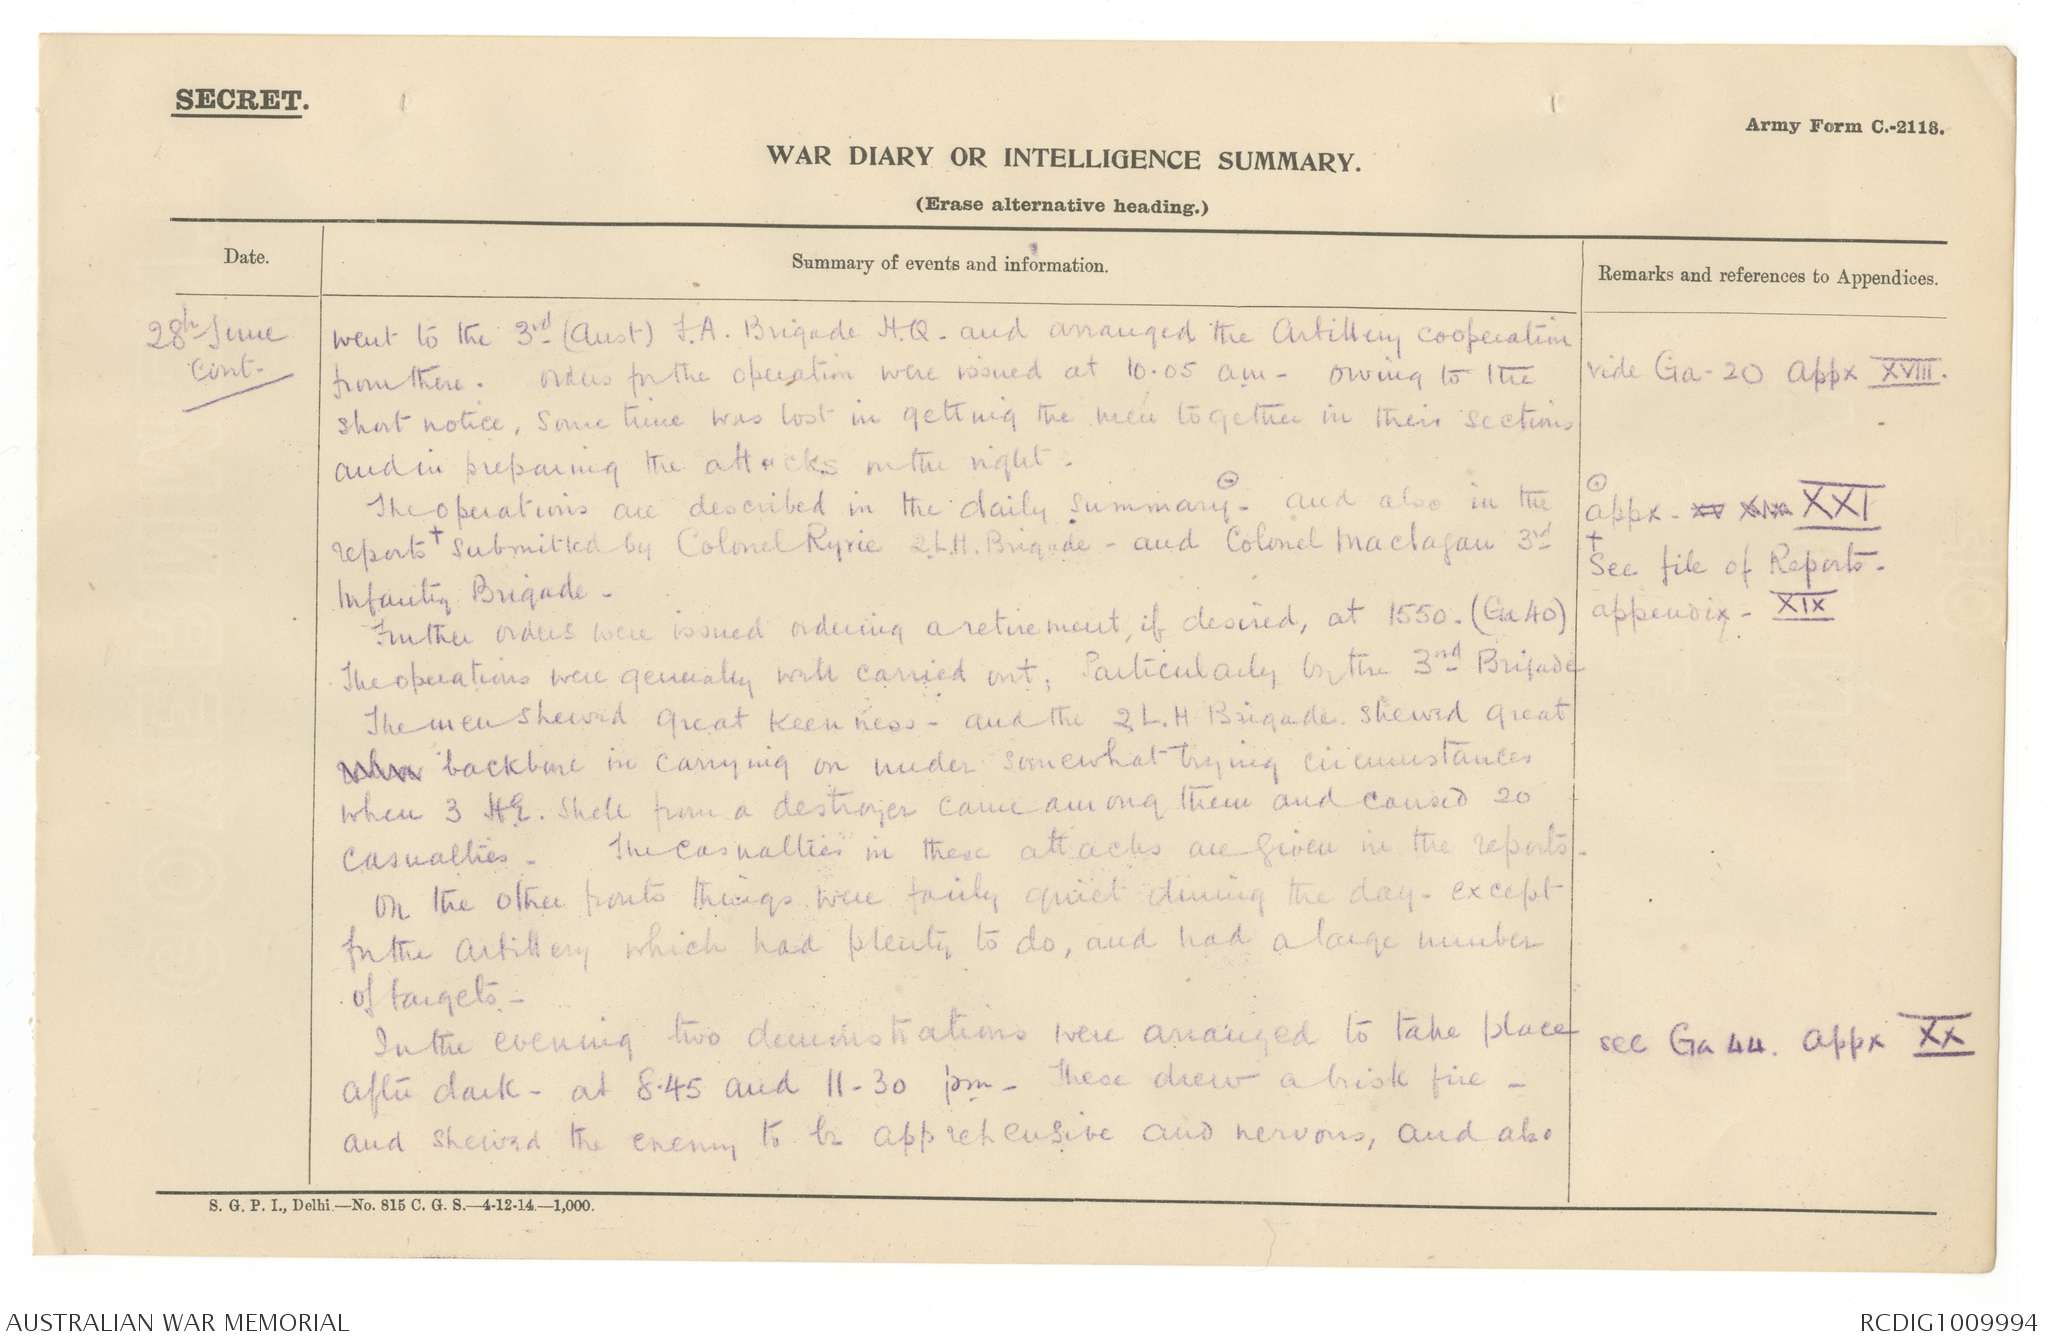 SECRET.
Army Form C.-2118.
WAR DIARY OR INTELLIGENCE SUMMARY.
(Erase alternative heading.)
Date.
Summary of events and information.
Remarks and references to Appendices.
28th June
cont.
went to the 3rd (Aust) F.A. Brigade H.Q. and arranged the Artillery cooperation
from there. Orders for the operation were issued at 10.05 am - Owing to the
vide Ga-20 Appx XVIII.
short notice, some time was lost in getting the men together in their sections
and in preparing the attacks on the right -
The operations are described in the daily summary ⊙ - and also in the
⊙
appx - XV XIX XXI
reports + submitted by Colonel Ryrie 2 L.H. Brigade - and Colonel Maclagan 3rd
+
See file of Reports -
Infantry Brigade -
appendix - XIX
Further orders were issued ordering a retirement, if desired, at 1550. (Ga 40)
The operations were generally well carried out, Particularly by the 3rd Brigade
The men shewed great keenness - and the 2 L.H Brigade shewed great
backbone in carrying on under somewhat trying circumstances
when 3 H.E. shell from a destroyer came among them and caused 20
casualties - The casualties in these attacks are given in the reports -
On the other fronts things were fairly quiet during the day - except
for the Artillery which had plenty to do, and had a large number
of targets -
In the evening two demonstrations were arranged to take place
see Ga 44. Appx XX
after dark - at 8.45 and 11-30 pm - These drew a brisk fire -
and shewed the enemy to be apprehensive and nervous, and also
S. G. P. I., Delhi.—No. 815 C. G. S.—4-12-14.—1,000.
AUSTRALIAN WAR MEMORIAL
RCDIG1009994